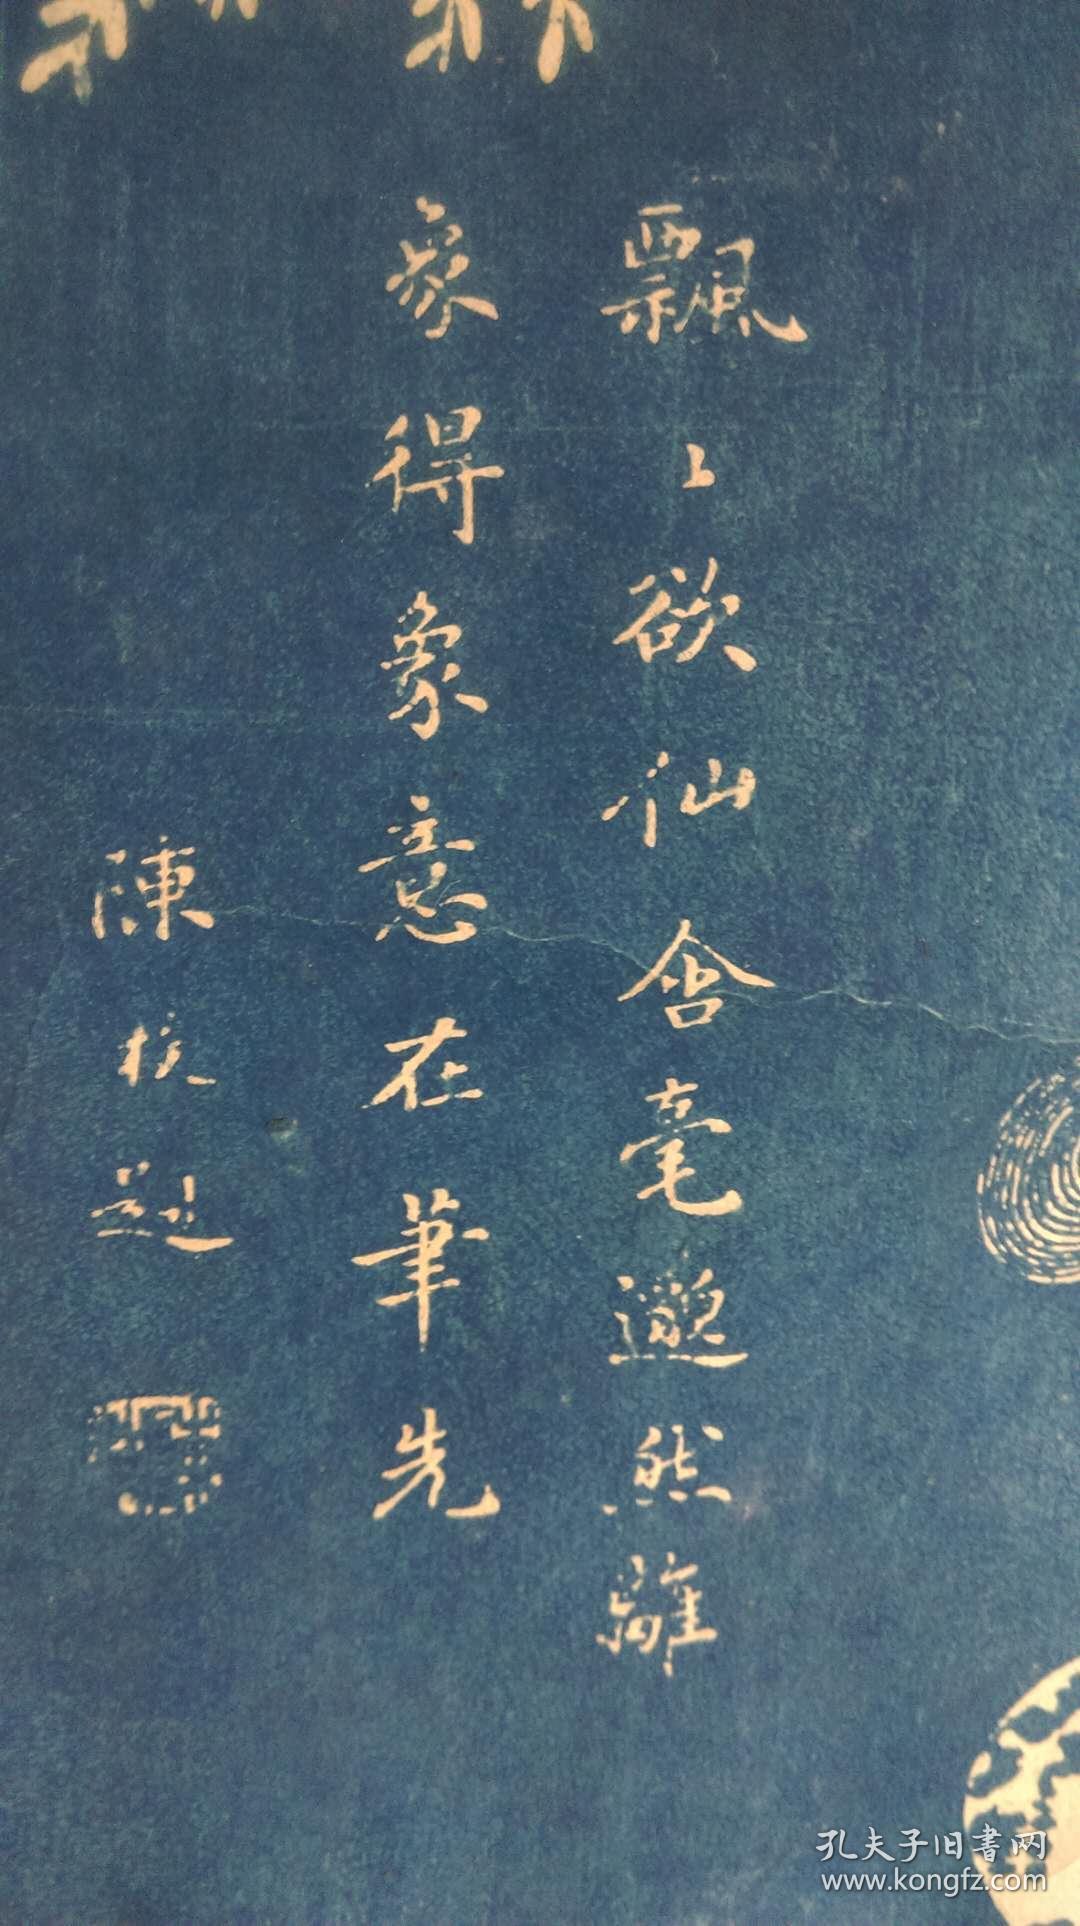 飄〻欲仙含毫邈然離
象得象意在筆先
陳枚題
孔夫子旧書网
www.kongfz.com